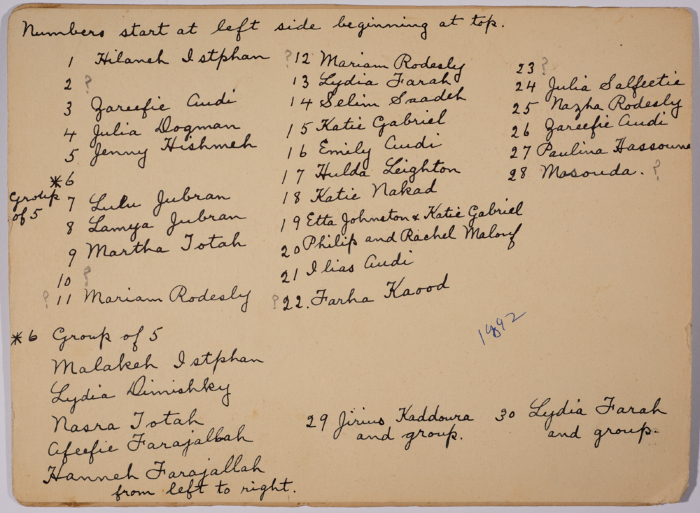 Numbers start at left side beginning at top.
1 Hilaneh Istphan
2 ?
3 Zareefie Audi
4 Julia Dogman
5 Jenny Hishmeh
*6
Group of 5
7 Lulu Jubran
8 Lamya Jubran
9 Martha Totah
10 ?
? 11 Mariam Rodesly
? 12 Mariam Rodesly
13 Lydia Farah
14 Selim Saadeh
15 Katie Gabriel
16 Emily Audi
17 Hulda Leighton
18 Katie Nakad
19 Etta Johnston & Katie Gabriel
20 Philip and Rachel Malouf
21 Ilias Audi
? 22. Farha Kaood
23 ?
24 Julia Salfeetie
25 Nazha Rodesly
26 Zareefie Audi
27 Paulina Hassoune
28 Masouda. ?
1892
*6 Group of 5
Malakeh Istphan
Lydia Dimishky
Nasra Totah
Afeefie Farajallah
Hanneh Farajallah
from left to right.
29 Jirius Kaddoura
and group.
30 Lydia Farah
and group.